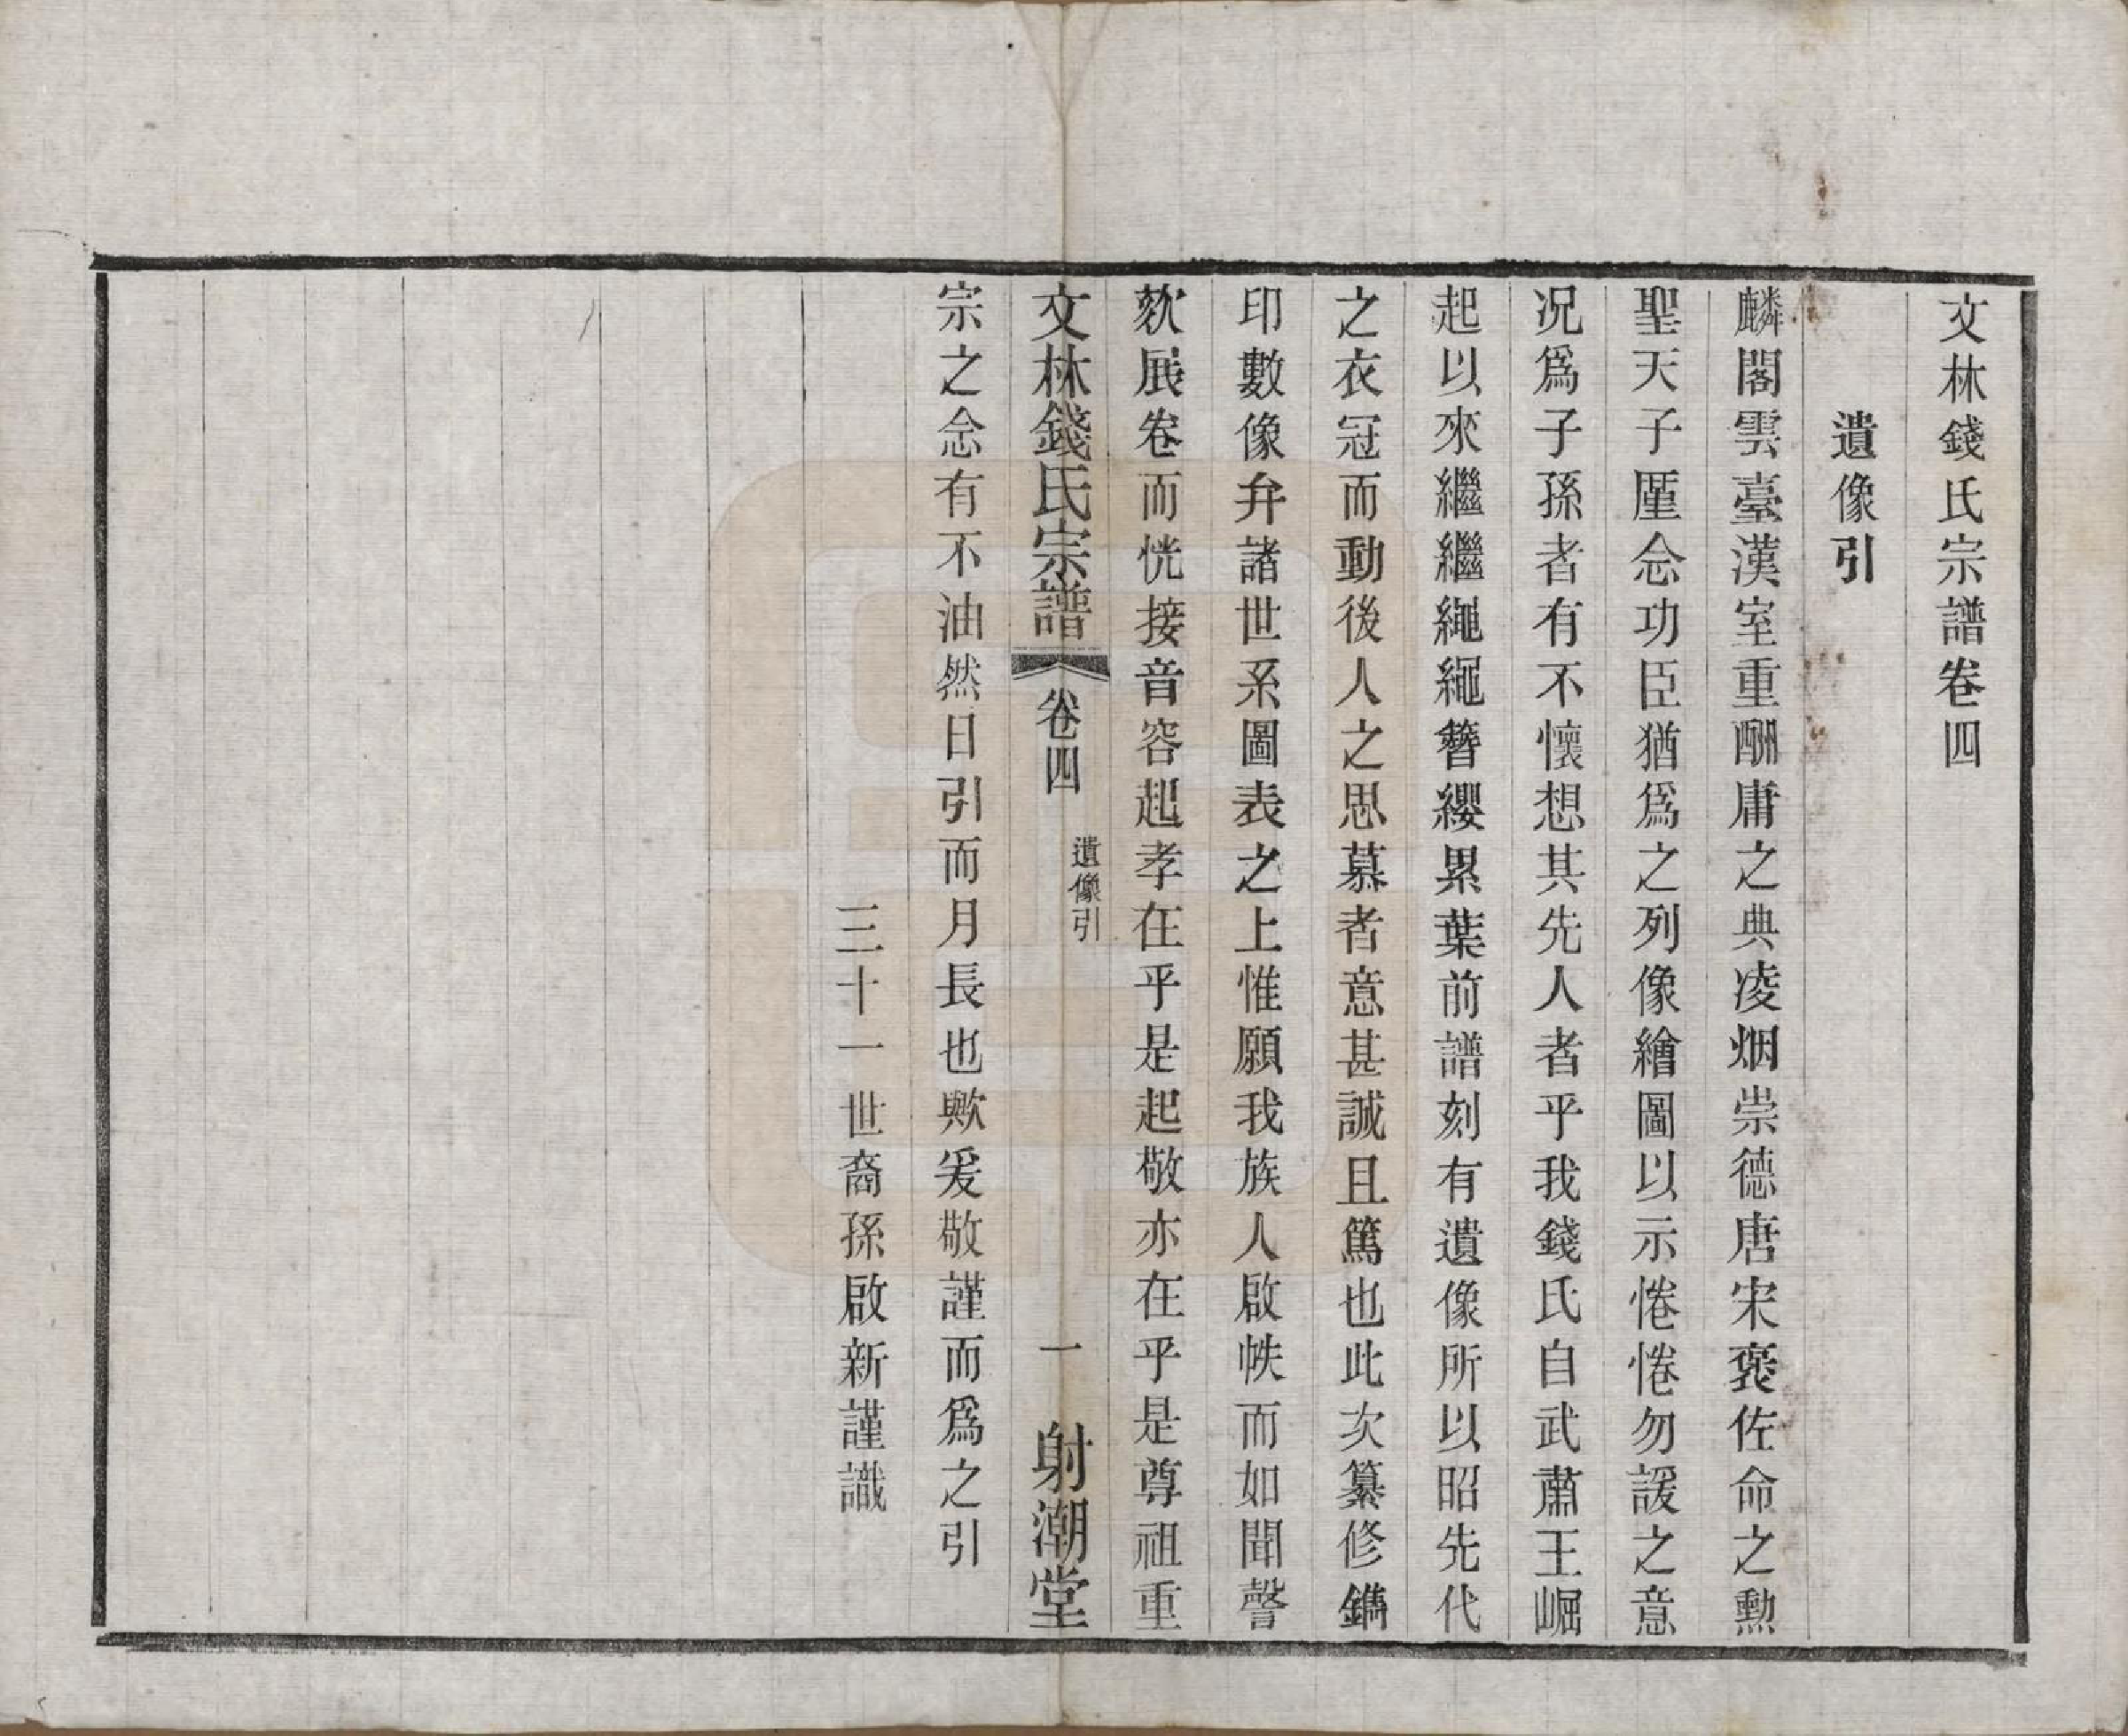 文林錢氏宗譜卷四
遺像引
麟閣雲臺漢室重酬庸之典凌烟崇德唐宋褒佐命之勲
聖天子厪念功臣猶爲之列像繪圖以示惓惓勿諼之意
况爲子孫者有不懷想其先人者乎我錢氏自武肅王崛
起以來繼繼繩繩簪纓累葉前譜刻有遺像所以昭先代
之衣冠而動後人之思慕者意甚誠且篤也此次纂修鐫
印數像弁諸世系圖表之上惟願我族人啟帙而如聞謦
欬展卷而恍接音容起孝在乎是起敬亦在乎是尊祖重
文林錢氏宗譜 卷四 遺像引 一 射潮堂
宗之念有不油然日引而月長也歟爰敬謹而爲之引
三十一世裔孫啟新謹識